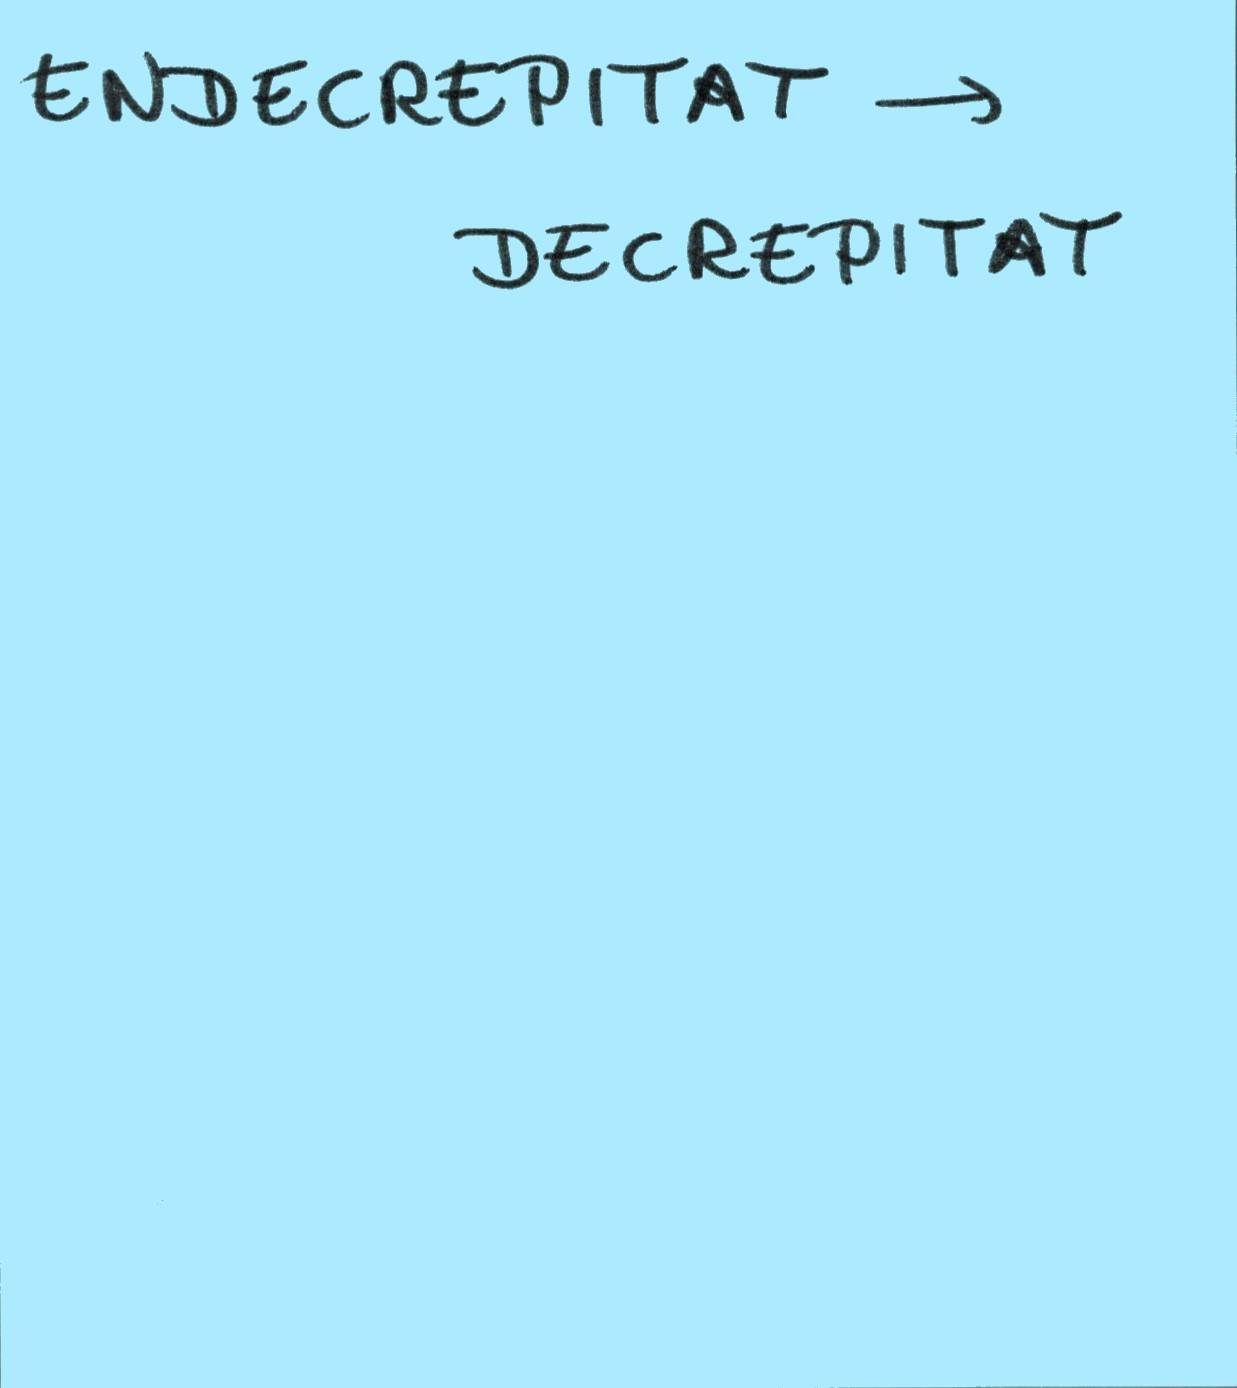 ENDECREPITAT →
DECREPITAT